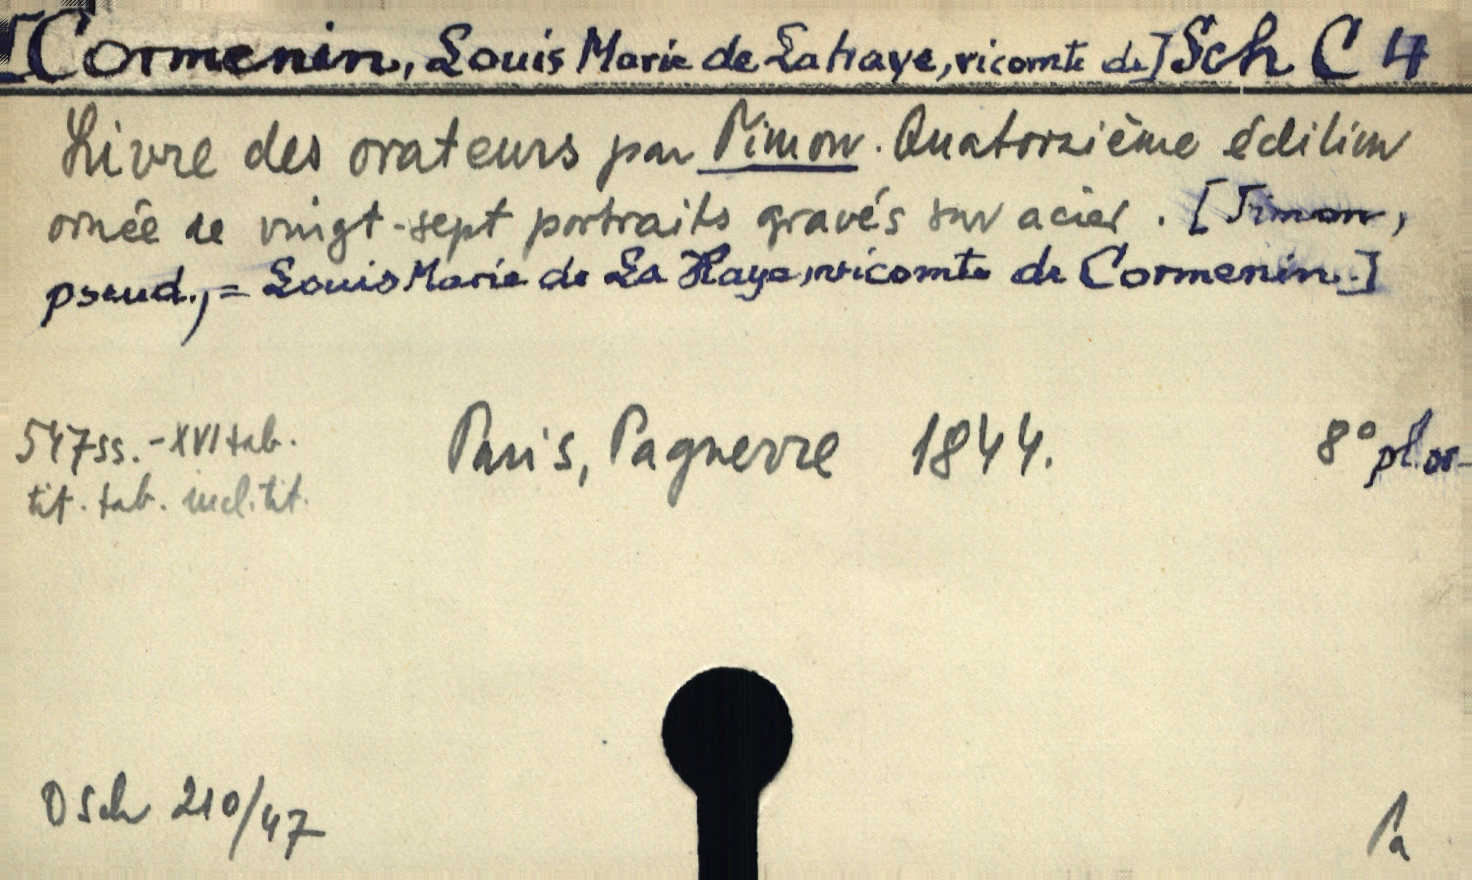 [Cormenin, Louis Marie de Lahaye, vicomte de] Sch C 4
Livre des orateurs par Timon. Quatorzième édition
ornée de vingt-sept portraits gravés sur acier. [Timon,
pseud., = Louis Marie de La Haye, vicomte de Cormenin.]
547 ss. - XVI tab.
tit. tab. incl. tit.
Paris, Pagnerre 1844.
8° pl. or-
O Sch 210/47
Pa